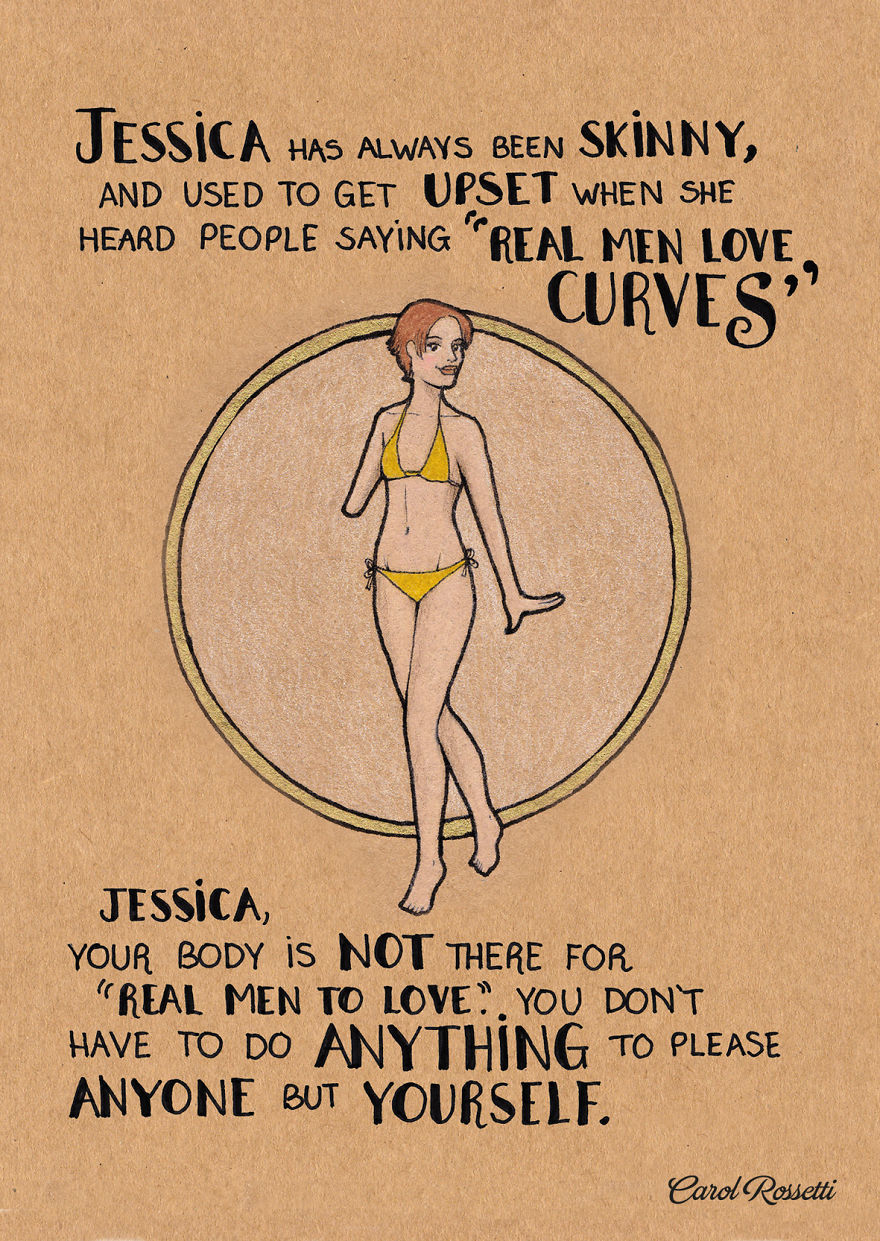 JESSiCA HAS ALWAYS BEEN SKiNNY,
AND USED TO GET UPSET WHEN SHE
HEARD PEOPLE SAYiNG "REAL MEN LOVE
CURVES"
JESSiCA,
YOUR BODY iS NOT THERE FOR
"REAL MEN TO LOVE". YOU DON'T
HAVE TO DO ANYTHiNG TO PLEASE
ANYONE BUT YOURSELF.
Carol Rossetti